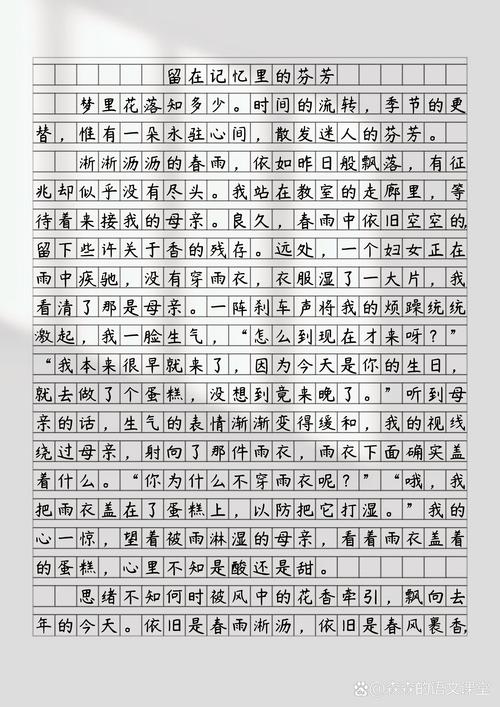 留在记忆里的芬芳
梦里花落知多少。时间的流转，季节的更
替，惟有一朵永驻心间，散发迷人的芬芳。
淅淅沥沥的春雨，依如昨日般飘落，有征
兆却似乎没有尽头。我站在教室的走廊里，等
待着来接我的母亲。良久，春雨中依旧空空的，
留下些许关于香的残存。远处，一个妇女正在
雨中疾驰，没有穿雨衣，衣服湿了一大片，我
看清了那是母亲。一阵刹车声将我的烦躁统统
激起，我一脸生气，“怎么到现在才来呀？”
“我本来很早就来了，因为今天是你的生日，
就去做了个蛋糕，没想到竟来晚了。”听到母
亲的话，生气的表情渐渐变得缓和，我的视线
绕过母亲，射向了那件雨衣，雨衣下面确实盖
着什么。“你为什么不穿雨衣呢？”“哦，我
把雨衣盖在了蛋糕上，以防把它打湿。”我的
心一惊，望着被雨淋湿的母亲，看着雨衣盖着
的蛋糕，心里不知是酸还是甜。
思绪不知何时被风中的花香牵引，飘向去
年的今天。依旧是春雨淅沥，依旧是春风裹香，
@森森的语文课堂